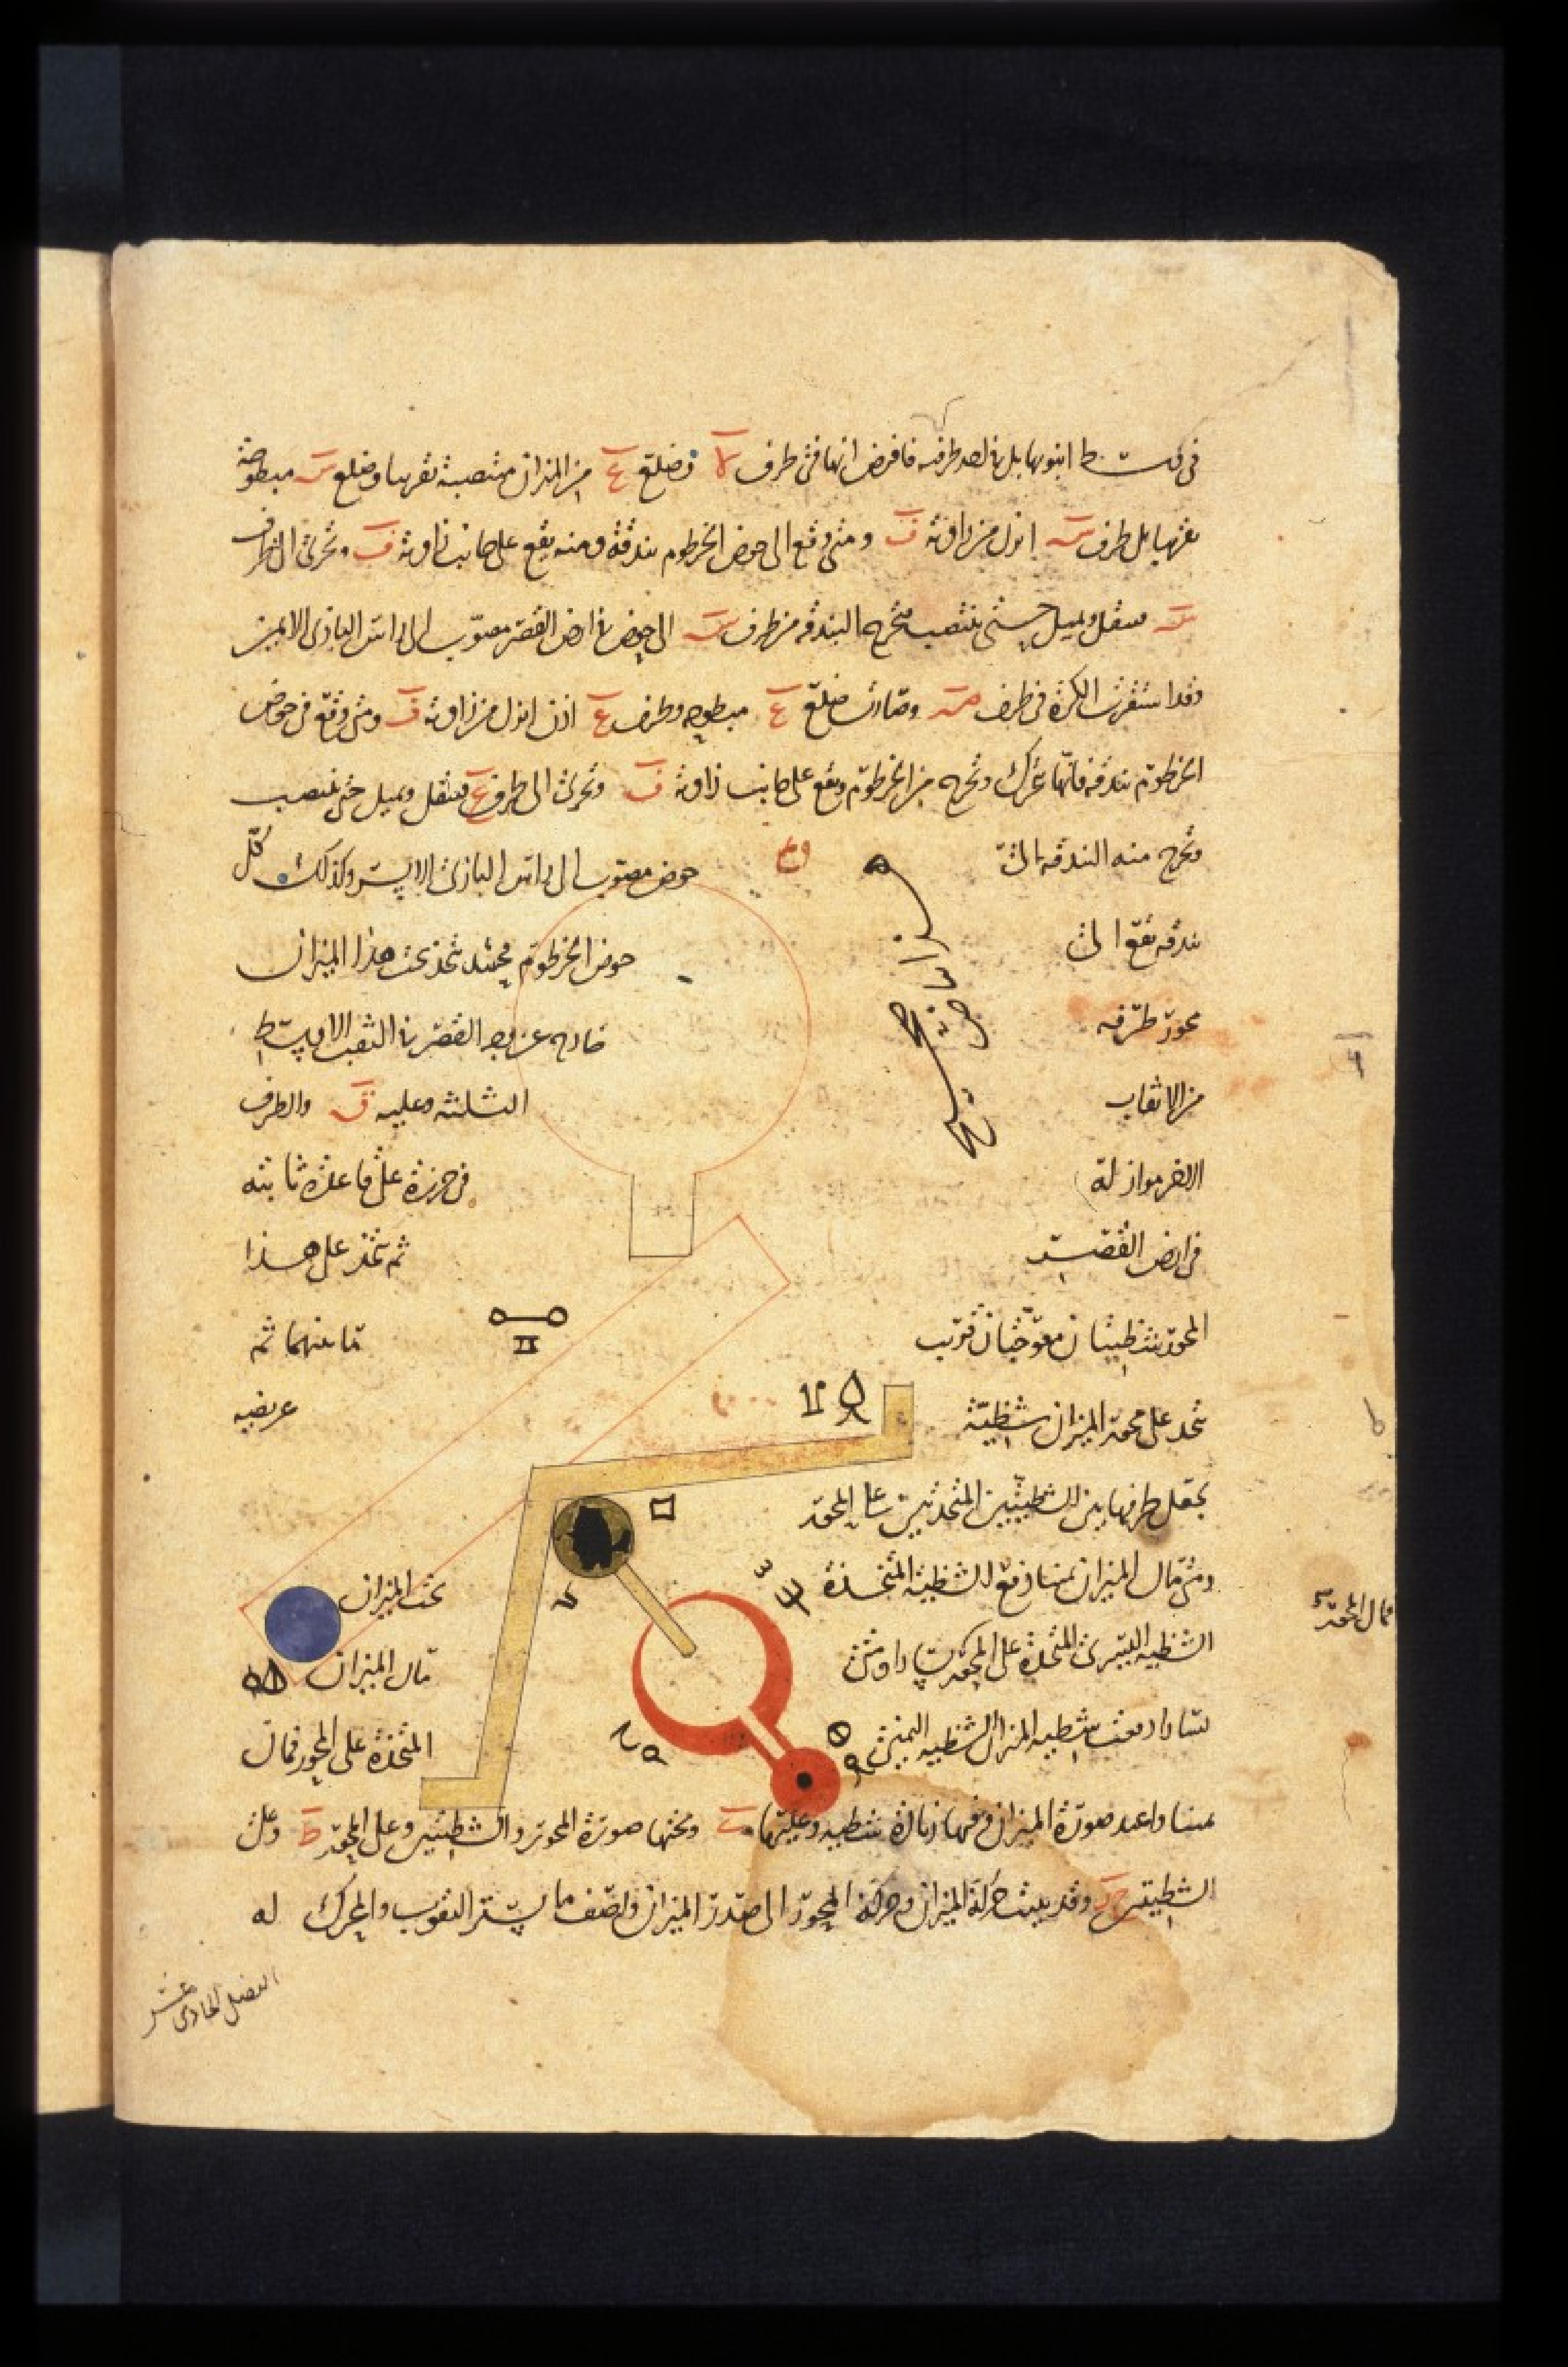 في وسط انبوبها بل في احد طرفيه فافرض انها في طرف وضلع ع من الميزان منتصبة تقريبا وضلع س مبطوحة
تقريبا بل طرف س انزل من زاوية ف ومتى وقع الى حوض الخرطوم بندقة ومنه يقع على جانب زاوية ف وتجري الى طرف
س فيثقل ويميل حتى ينتصب وتخرج البندقة من طرف س الى حوض في ارض القصر مصوّب الى راس البازي الايمن
وقد استقرت الكرة في طرف وصارت ضلع ع مبطوحة وطرف ع اذن انزل من زاوية ف ومتى وقع في حوض
الخرطوم بندقة فانها تتحرك وتخرج من الخرطوم وتقع على جانب زاوية ف وتجري الى طرف ع فيثقل ويميل حتى ينتصب
وتخرج منه البندقة الى حوض مصوب الى راس البازي الايسر وكذلك كل
بندقة تقع الى حوض الخرطوم يتخذ تحت هذا الميزان
محور طرفه خارج عن وجه القصر في الثقب الاوسط
من الاثقاب الثلثة وعليه ق والطرف
الاخر مواز له في خرزة على قاعدة ثابتة
في ارض القصر ثم يتخذ على هذا
المحور شظيتان معوجتان قريب ما بينهما ثم
يتخذ على محور الميزان شظية عريضة
يجعل طرفها بين الشظيتين المتخذتين على المحور
ومتى مال الميزان يمينا دفع الشظية المتخذة تحت الميزان
الشظية اليسرى المتخذة على المحور يسارا ومتى مال الميزان
يسارا دفعت شظية الميزان الشظية اليمنى المتخذة على المحور فمال
يمينا واعيد صورة الميزان وفيها زيادة شظية وعليها وتحتها صورة المحور والشظيتين وعلى المحور ط وعلى
الشظيتين وقد بينت حركة الميزان وحركة المحور الى صدر الميزان واصف ما يستر الثقوب والمحرك له
فمال المحور
الفصل الحادي عشر